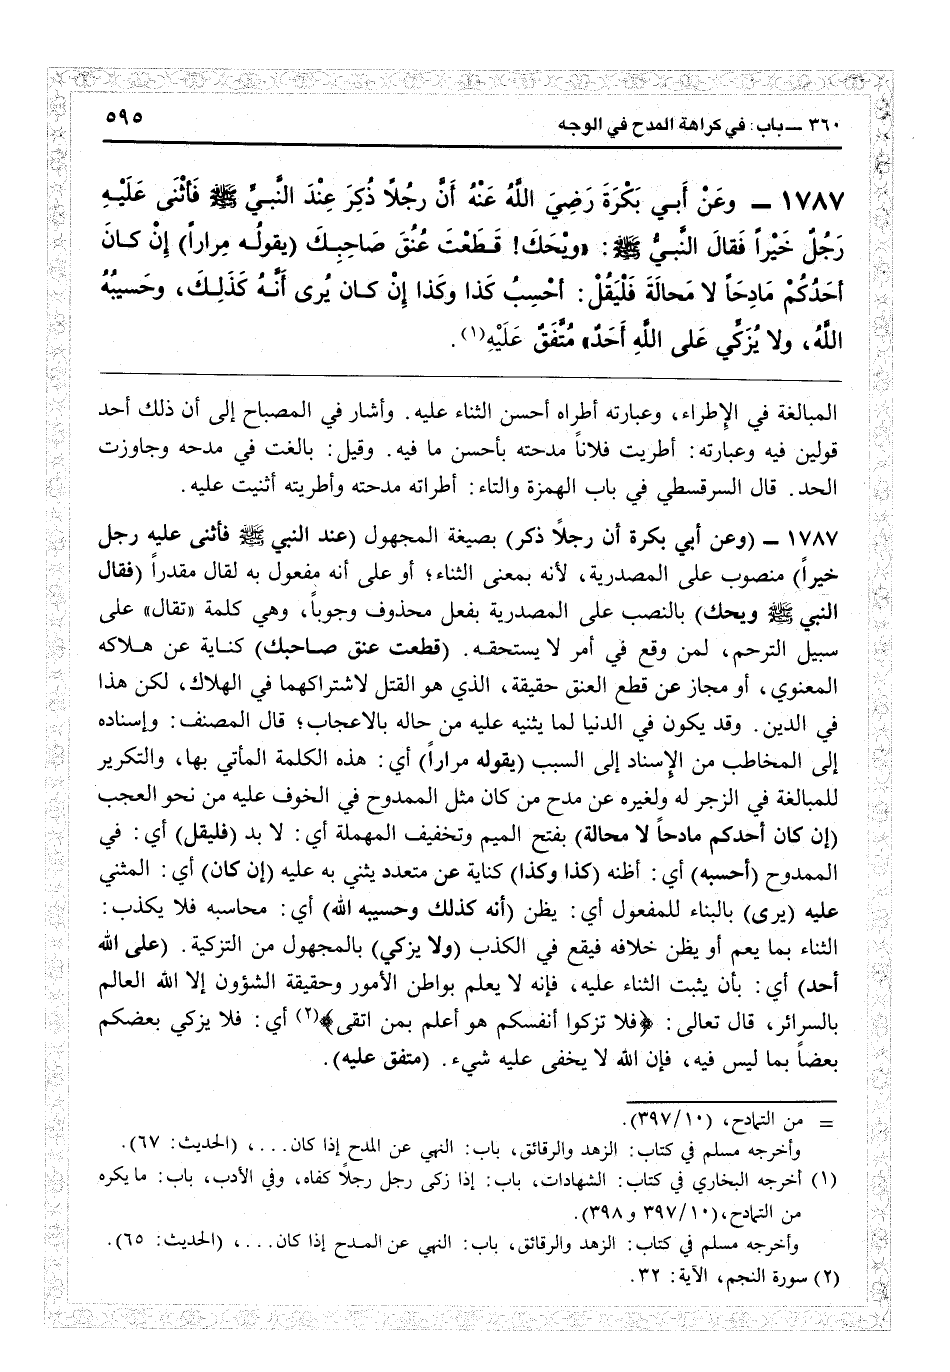 ٣٦٠ ــ باب: في كراهة المدح في الوجه ٥٩٥
١٧٨٧ ــ وعَنْ أَبي بَكْرَةَ رَضِيَ اللَّهُ عَنْهُ أَنَّ رجُلاً ذُكِرَ عِنْدَ النَّبيِّ ﷺ فَأَثْنَى عَلَيْهِ
رَجُلٌ خَيْراً فَقالَ النَّبيُّ ﷺ: «ويْحَكَ! قَطَعْتَ عُنُقَ صَاحِبِكَ (يقولُه مِراراً) إنْ كانَ
أحَدُكُمْ مَادِحَاً لا مَحالَةَ فَلْيَقُلْ: أحْسِبُ كَذا وكَذا إنْ كان يُرى أنَّهُ كَذَلِكَ، وحَسيبُهُ
اللَّهُ، ولا يُزَكِّي عَلى اللَّهِ أَحَدٌ» مُتَّفَقٌ عَلَيْهِ(١).
المبالغة في الإطراء، وعبارته أطراه أحسن الثناء عليه. وأشار في المصباح إلى أن ذلك أحد
قولين فيه وعبارته: أطريت فلاناً مدحته بأحسن ما فيه. وقيل: بالغت في مدحه وجاوزت
الحد. قال السرقسطي في باب الهمزة والتاء: أطراته مدحته وأطريته أثنيت عليه.
١٧٨٧ ــ (وعن أبي بكرة أن رجلاً ذكر) بصيغة المجهول (عند النبي ﷺ فأثنى عليه رجل
خيراً) منصوب على المصدرية، لأنه بمعنى الثناء؛ أو على أنه مفعول به لقال مقدراً (فقال
النبي ﷺ ويحك) بالنصب على المصدرية بفعل محذوف وجوباً، وهي كلمة «تقال» على
سبيل الترحم، لمن وقع في أمر لا يستحقه. (قطعت عنق صاحبك) كناية عن هلاكه
المعنوي، أو مجاز عن قطع العنق حقيقة، الذي هو القتل لاشتراكهما في الهلاك، لكن هذا
في الدين. وقد يكون في الدنيا لما يثنيه عليه من حاله بالاعجاب؛ قال المصنف: وإسناده
إلى المخاطب من الإسناد إلى السبب (يقوله مراراً) أي: هذه الكلمة المأتي بها، والتكرير
للمبالغة في الزجر له ولغيره عن مدح من كان مثل الممدوح في الخوف عليه من نحو العجب
(إن كان أحدكم مادحاً لا محالة) بفتح الميم وتخفيف المهملة أي: لا بد (فليقل) أي: في
الممدوح (أحسبه) أي: أظنه (كذا وكذا) كناية عن متعدد يثني به عليه (إن كان) أي: المثني
عليه (يرى) بالبناء للمفعول أي: يظن (أنه كذلك وحسيبه الله) أي: محاسبه فلا يكذب:
الثناء بما يعم أو يظن خلافه فيقع في الكذب (ولا يزكي) بالمجهول من التزكية. (على الله
أحد) أي: بأن يثبت الثناء عليه، فإنه لا يعلم بواطن الأمور وحقيقة الشؤون إلا الله العالم
بالسرائر، قال تعالى: ﴿فلا تزكوا أنفسكم هو أعلم بمن اتقى﴾(٢) أي: فلا يزكي بعضكم
بعضاً بما ليس فيه، فإن الله لا يخفى عليه شيء. (متفق عليه).
= من التمادح، (٣٩٧/١٠).
وأخرجه مسلم في كتاب: الزهد والرقائق، باب: النهي عن المدح إذا كان...، (الحديث: ٦٧).
(١) أخرجه البخاري في كتاب: الشهادات، باب: إذا زكى رجل رجلاً كفاه، وفي الأدب، باب: ما يكره
من التمادح، (٣٩٧/١٠ و ٣٩٨).
وأخرجه مسلم في كتاب: الزهد والرقائق، باب: النهي عن المدح إذا كان...، (الحديث: ٦٥).
(٢) سورة النجم، الآية: ٣٢.